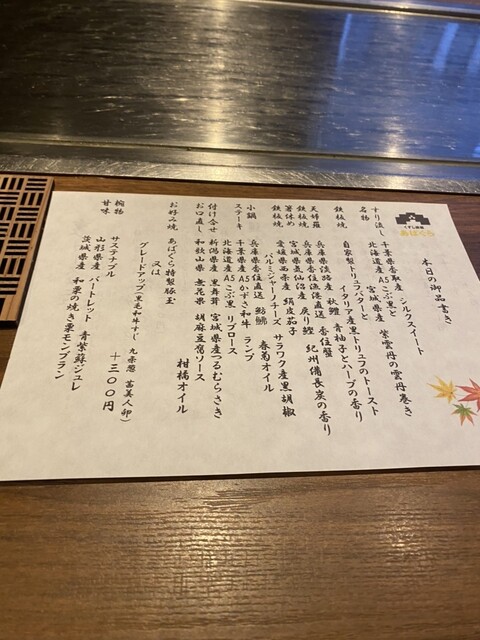 くずし鉄板
あばぐら
本日の御品書き
すり流し 千葉県香取産 シルクスイート
名物 北海道産A5こぶ黒と 宮城県産 紫雲丹の雲丹巻き
自家製トリュフバターと
イタリア産黒トリュフのトースト
鉄板焼 兵庫県淡路産 秋鱧 青柚子とハーブの香り
天婦羅 兵庫県香住漁港直送 香住蟹
鉄板焼 宮城県気仙沼産 戻り鰹 紀州備長炭の香り
箸休め 愛媛県西条産 絹皮茄子
鉄板焼 パルミジャーノチーズ サラワク産黒胡椒
小鍋 兵庫県香住直送 鮟鱇 春菊オイル
ステーキ 千葉県産A5かずさ和牛 ランプ
北海道産A5こぶ黒 リブロース
付け合せ 新潟県産 黒舞茸 宮城県産つるむらさき
お口直し 和歌山県 無花果 胡麻豆腐ソース
柑橘オイル
お好み焼 あばぐら特製豚玉
又は
グレードアップ(黒毛和牛すじ 九条葱 蕾美人卵)
+三〇〇円
椀物 サステナブル
甘味 山形県産バートレット 青紫蘇ジュレ
茨城県産 和栗の焼き栗モンブラン